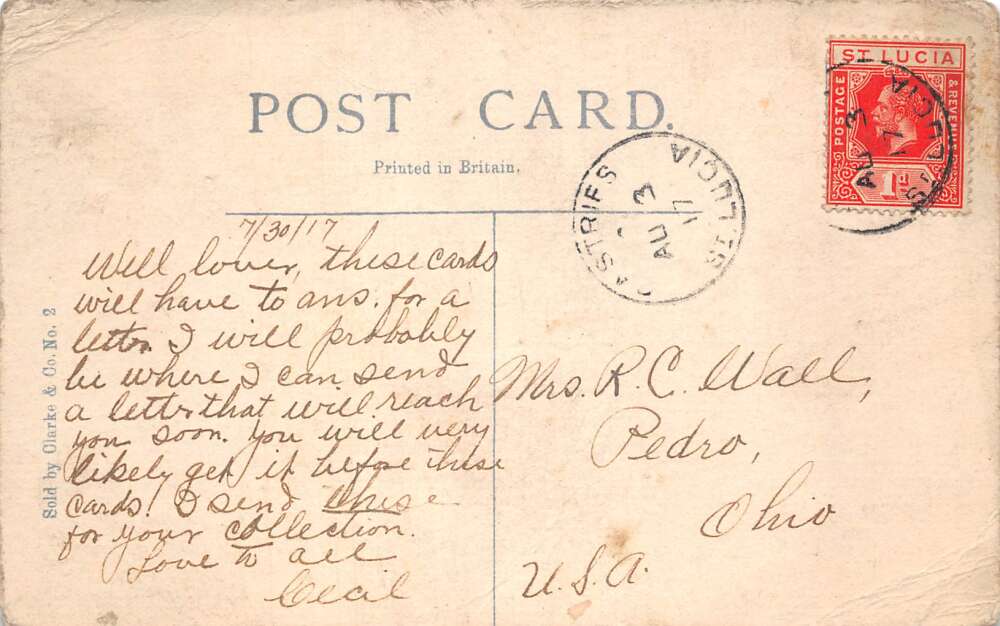 POST CARD.
Printed in Britain.
ST. LUCIA
POSTAGE
& REVENUE
1d
ST. LUCIA
AU 3
17
CASTRIES
AU 3
17
ST. LUCIA
Sold by Clarke & Co. No. 2
7/30/17
Well lover, these cards
will have to ans. for a
letter. I will probably
be where I can send
a letter that will reach
you soon. you will very
likely get it before these
cards. I send these
for your collection.
Love to all
Cecil
Mrs. R. C. Wall,
Pedro,
Ohio
U.S.A.